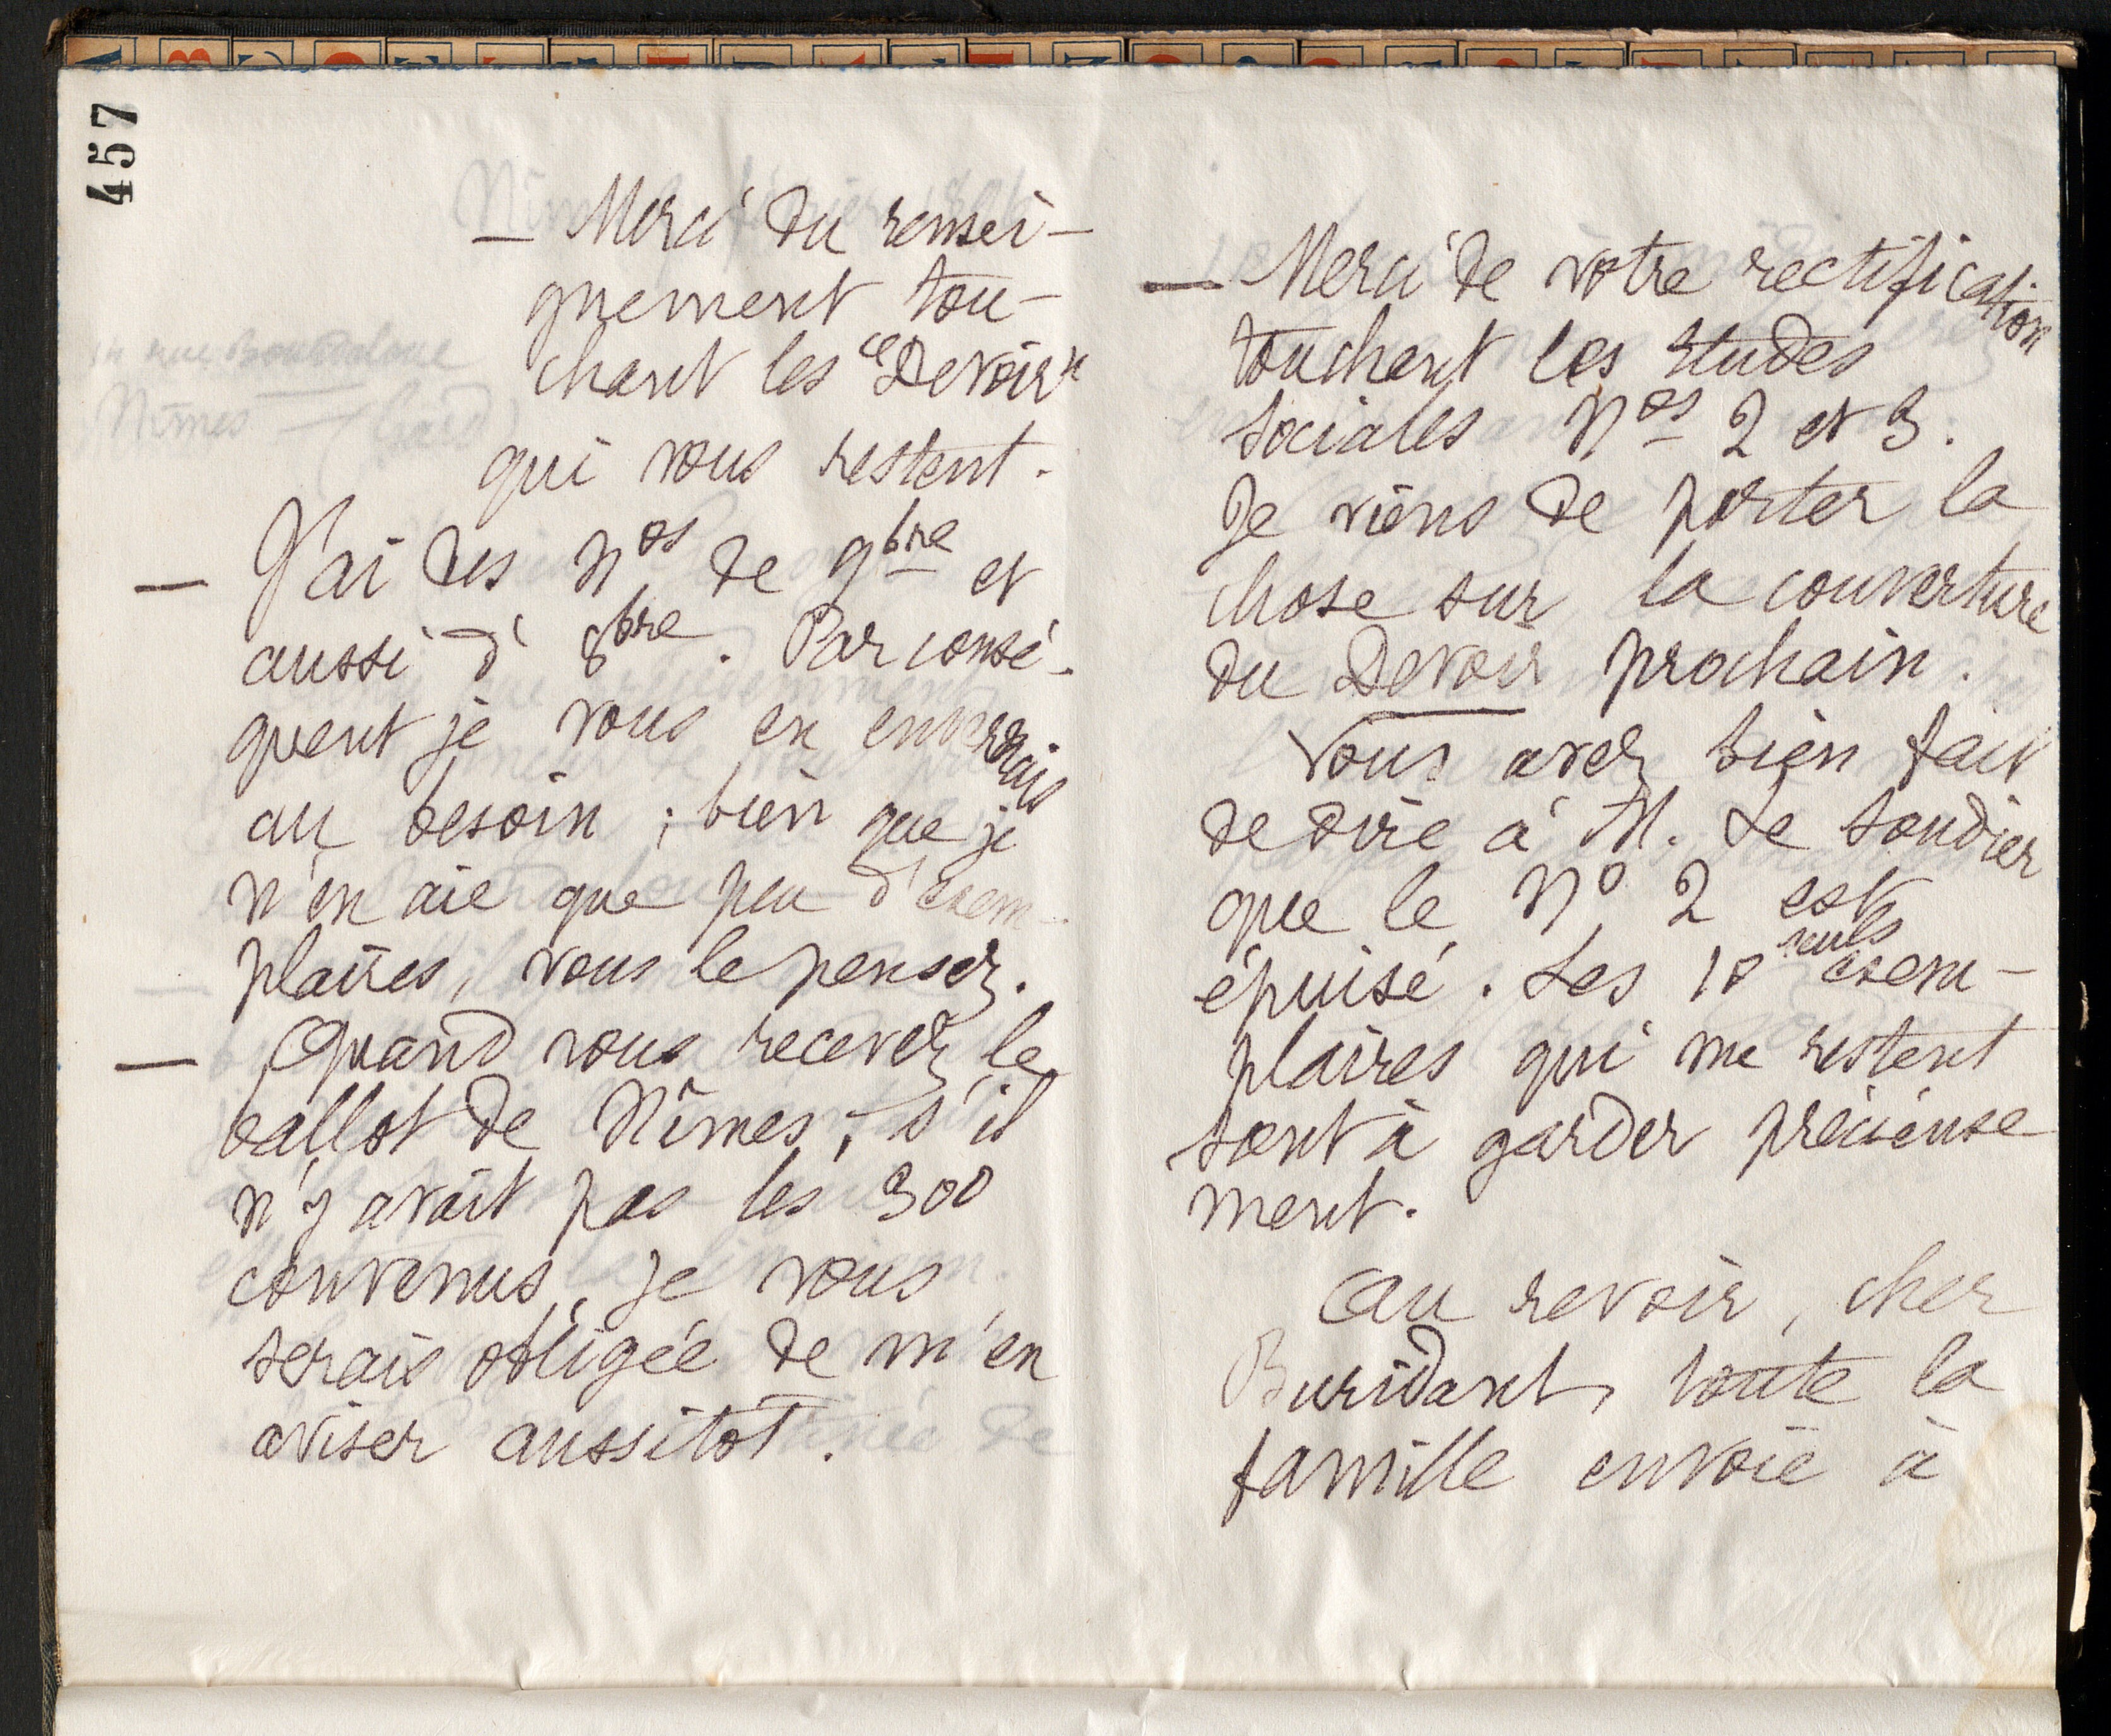 457
— Merci du rensei-
gnement tou-
chant les "Devoir"
qui vous restent.
— J'ai des Nos de 9bre et
aussi d' 8bre. Par consé-
quent je vous en enverrais
au besoin ; bien que je
n'en aie que peu d'exem-
plaires, vous le pensez.
— Quand vous recevez le
ballot de Nîmes, s'il
n'y avait pas les 300
convenus, je vous
serais obligée de m'en
aviser aussitôt.
— Merci de votre rectification
touchant les Etudes
sociales Nos 2 et 3.
Je viens de porter la
chose sur la couverture
du Devoir prochain.
Vous avez bien fait
de dire à M. Le Soudier
que le No 2 est
épuisé. Les 10 seuls exem-
plaires qui me restent
sont à garder précieuse
ment.
Au revoir, cher
Buridant, toute la
famille envoie à